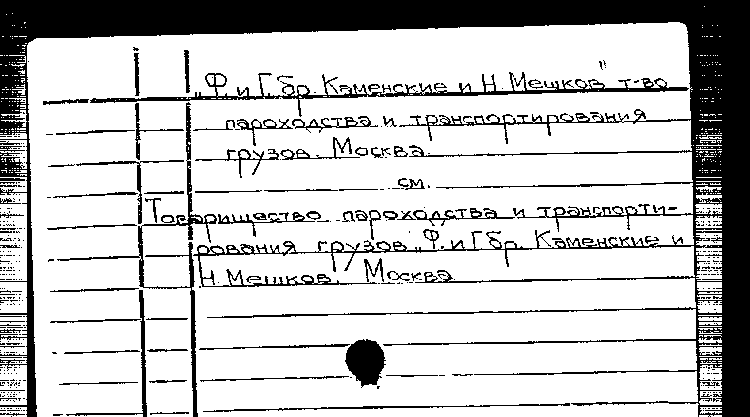 „Ф. и Г. бр. Каменские и Н. Мешков" т-во
пароходства и транспортирования
грузов. Москва.
см.
Товарищество пароходства и транспорти-
рования грузов „Ф. и Г. бр. Каменские и
Н. Мешков. Москва